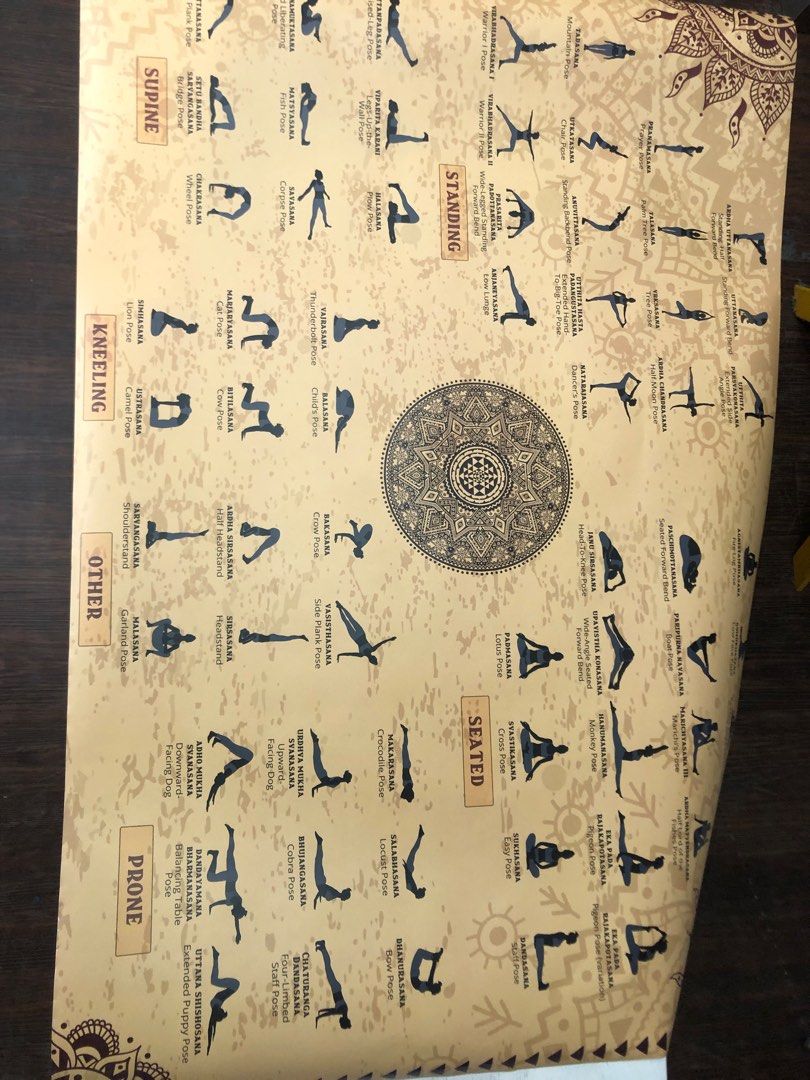 ARDHA UTTANASANA
Standing Half
Forward Bend
UTTANASANA
Standing Forward Bend
UTTHITA
PARSVAKONASANA
Extended Side
Angle Pose
PRANAMASANA
Prayer Pose
Palm Tree Pose
VRKSASANA
Tree Pose
ARDHA CHANDRASANA
Half Moon Pose
TADASANA
Mountain Pose
UTKATASANA
Chair Pose
ANUVITTASANA
Standing Backbend Pose
UTTHITA HASTA
PADANGUSTASANA
Extended Hand-
To-Big-Toe Pose
NATARAJASANA
Dancer's Pose
VIRABHADRASANA I
Warrior I Pose
VIRABHADRASANA II
Warrior II Pose
PRASARITA
PADOTTANASANA
Wide-Legged Standing
Forward Bend
ANJANEYASANA
Low Lunge
STANDING
PASCHIMOTTANASANA
Seated Forward Bend
PARIPURNA NAVASANA
Boat Pose
MARICHYASANA III
Marichi's Pose
ARDHA MATSYENDRASANA
Half Lord of the
Fishes Pose
JANU SIRSASANA
Head-To-Knee Pose
UPAVISTHA KONASANA
Wide-Angle Seated
Forward Bend
HANUMANASANA
Monkey Pose
EKA PADA
RAJAKAPOTASANA
Pigeon Pose
EKA PADA
RAJAKAPOTASANA
Pigeon Pose (variation)
PADMASANA
Lotus Pose
SVASTIKASANA
Cross Pose
SUKHASANA
Easy Pose
DANDASANA
Staff Pose
SEATED
VIPARITA KARANI
Legs-Up-the-
Wall Pose
HALASANA
Plow Pose
MATSYASANA
Fish Pose
SAVASANA
Corpse Pose
Plank Pose
SETU BANDHA
SARVANGASANA
Bridge Pose
CHAKRASANA
Wheel Pose
SUPINE
VAJRASANA
Thunderbolt Pose
BALASANA
Child's Pose
MARJARYASANA
Cat Pose
BITILASANA
Cow Pose
SIMHASANA
Lion Pose
USTRASANA
Camel Pose
KNEELING
BAKASANA
Crow Pose
VASISTHASANA
Side Plank Pose
ARDHA SIRSASANA
Half Headstand
SIRSASANA
Headstand
SARVANGASANA
Shoulderstand
MALASANA
Garland Pose
OTHER
MAKARASANA
Crocodile Pose
SALABHASANA
Locust Pose
DHANURASANA
Bow Pose
URDHVA MUKHA
SVANASANA
Upward-
Facing-Dog
BHUJANGASANA
Cobra Pose
CHATURANGA
DANDASANA
Four-Limbed
Staff Pose
ADHO MUKHA
SVANASANA
Downward-
Facing Dog
DANDAYAMANA
BHARMANASANA
Balancing Table
Pose
UTTANA SHISHOSANA
Extended Puppy Pose
PRONE